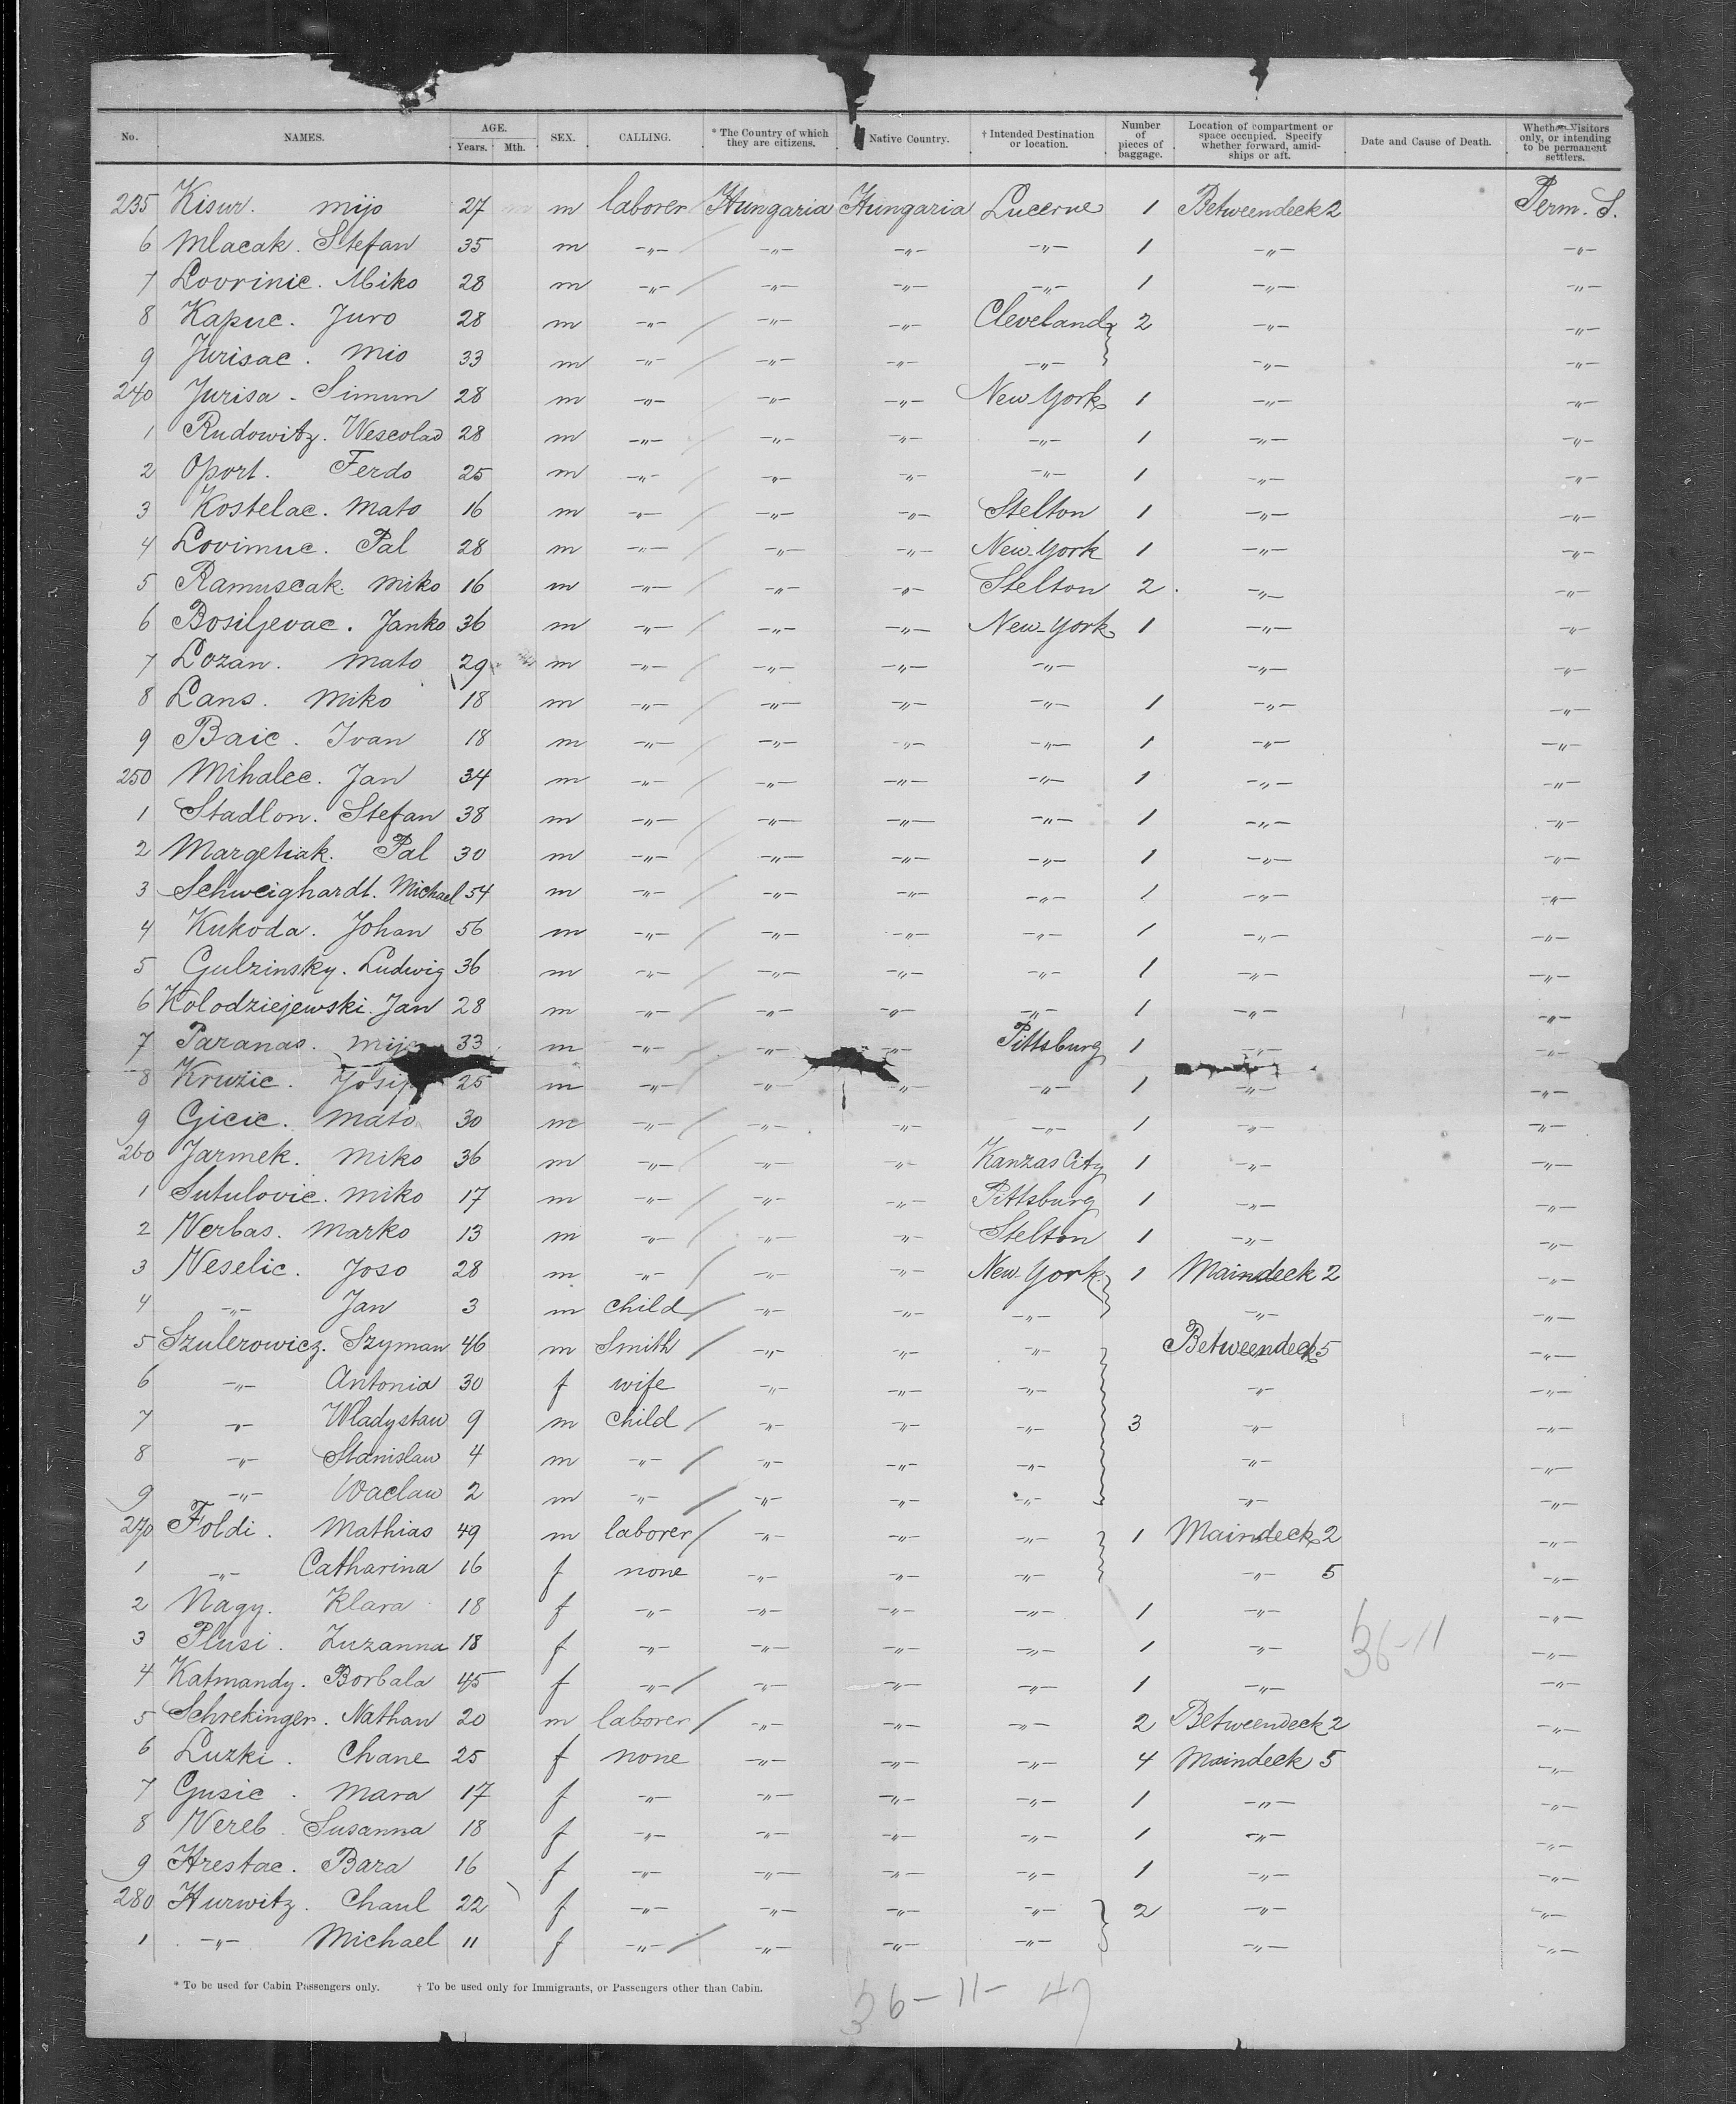 No. NAMES. AGE. Years. Mth. SEX. CALLING. * The Country of which they are citizens. Native Country. † Intended Destination or location. Number of pieces of baggage. Location of compartment or space occupied. Specify whether forward, amidships or aft. Date and Cause of Death. Whether Visitors only, or intending to be permanent settlers.
235 Kisur. Mijo 27 m laborer Hungaria Hungaria Lucerne 1 Betweendeck 2 Perm. S.
6 Mlacak. Stefan 35 m -"- -"- -"- -"- 1 -"- -"-
7 Lovrinic. Miko 28 m -"- -"- -"- -"- 1 -"- -"-
8 Kapuc. Juro 28 m -"- -"- -"- Cleveland 2 -"- -"-
9 Jurisac. Mio 33 m -"- -"- -"- -"- -"- -"-
240 Jurisa - Simun 28 m -"- -"- -"- New York 1 -"- -"-
1 Rudowitz. Wescolad 28 m -"- -"- -"- -"- 1 -"- -"-
2 Oport. Ferdo 25 m -"- -"- -"- -"- 1 -"- -"-
3 Kostelac. Mato 16 m -"- -"- -"- Stelton 1 -"- -"-
4 Lovimuc. Pal 28 m -"- -"- -"- New-York 1 -"- -"-
5 Ramuscak. Miko 16 m -"- -"- -"- Stelton 2 -"- -"-
6 Bosiljevac. Janko 36 m -"- -"- -"- New-York 1 -"- -"-
7 Lozan. Mato 29 m -"- -"- -"- -"- -"- -"-
8 Lans. Miko 18 m -"- -"- -"- -"- 1 -"- -"-
9 Baic. Ivan 18 m -"- -"- -"- -"- 1 -"- -"-
250 Mihalec. Jan 34 m -"- -"- -"- -"- 1 -"- -"-
1 Stadlon. Stefan 38 m -"- -"- -"- -"- 1 -"- -"-
2 Margetiak. Pal 30 m -"- -"- -"- -"- 1 -"- -"-
3 Schweighardt. Michael 54 m -"- -"- -"- -"- 1 -"- -"-
4 Kukoda. Johan 56 m -"- -"- -"- -"- 1 -"- -"-
5 Gulzinsky. Ludwig 36 m -"- -"- -"- -"- 1 -"- -"-
6 Kolodziejewski. Jan 28 m -"- -"- -"- -"- 1 -"- -"-
7 Paranas. Mijo 33 m -"- -"- -"- Pittsburg 1 -"- -"-
8 Kruzic. Josip 25 m -"- -"- -"- -"- 1 -"- -"-
9 Gicic. Mato 30 m -"- -"- -"- -"- 1 -"- -"-
260 Jarmek. Miko 36 m -"- -"- -"- Kanzas City 1 -"- -"-
1 Sutulovic. Miko 17 m -"- -"- -"- Pittsburg 1 -"- -"-
2 Verbas. Marko 13 m -"- -"- -"- Stelton 1 -"- -"-
3 Veselic. Joso 28 m -"- -"- -"- New-York 1 Maindeck 2 -"-
4 -"- Jan 3 m child -"- -"- -"- -"- -"-
5 Szulerowicz. Szyman 46 m Smith -"- -"- -"- Betweendeck 5 -"-
6 -"- Antonia 30 f wife -"- -"- -"- -"- -"-
7 -"- Wladystaw 9 m child -"- -"- -"- 3 -"- -"-
8 -"- Stanislaw 4 m -"- -"- -"- -"- -"- -"-
9 -"- Waclaw 2 m -"- -"- -"- -"- -"- -"-
270 Foldi. Mathias 49 m laborer -"- -"- -"- 1 Maindeck 2 -"-
1 -"- Catharina 16 f none -"- -"- -"- -"- 5 -"-
2 Nagy. Klara 18 f -"- -"- -"- -"- 1 -"- -"-
3 Plusi. Zuzanna 18 f -"- -"- -"- -"- 1 -"- 36-11 -"-
4 Katmandy. Borbala 45 f -"- -"- -"- -"- 1 -"- -"-
5 Schrekinger. Nathan 20 m laborer -"- -"- -"- 2 Betweendeck 2 -"-
6 Luzki. Chane 25 f none -"- -"- -"- 4 Maindeck 5 -"-
7 Gusic. Mara 17 f -"- -"- -"- -"- 1 -"- -"-
8 Vereb. Susanna 18 f -"- -"- -"- -"- 1 -"- -"-
9 Hrestac. Bara 16 f -"- -"- -"- -"- 1 -"- -"-
280 Hurwitz. Chaul 22 f -"- -"- -"- -"- 2 -"- -"-
1 -"- Michael 11 f -"- -"- -"- -"- -"- -"-
* To be used for Cabin Passengers only. † To be used only for Immigrants, or Passengers other than Cabin.
36-11-47